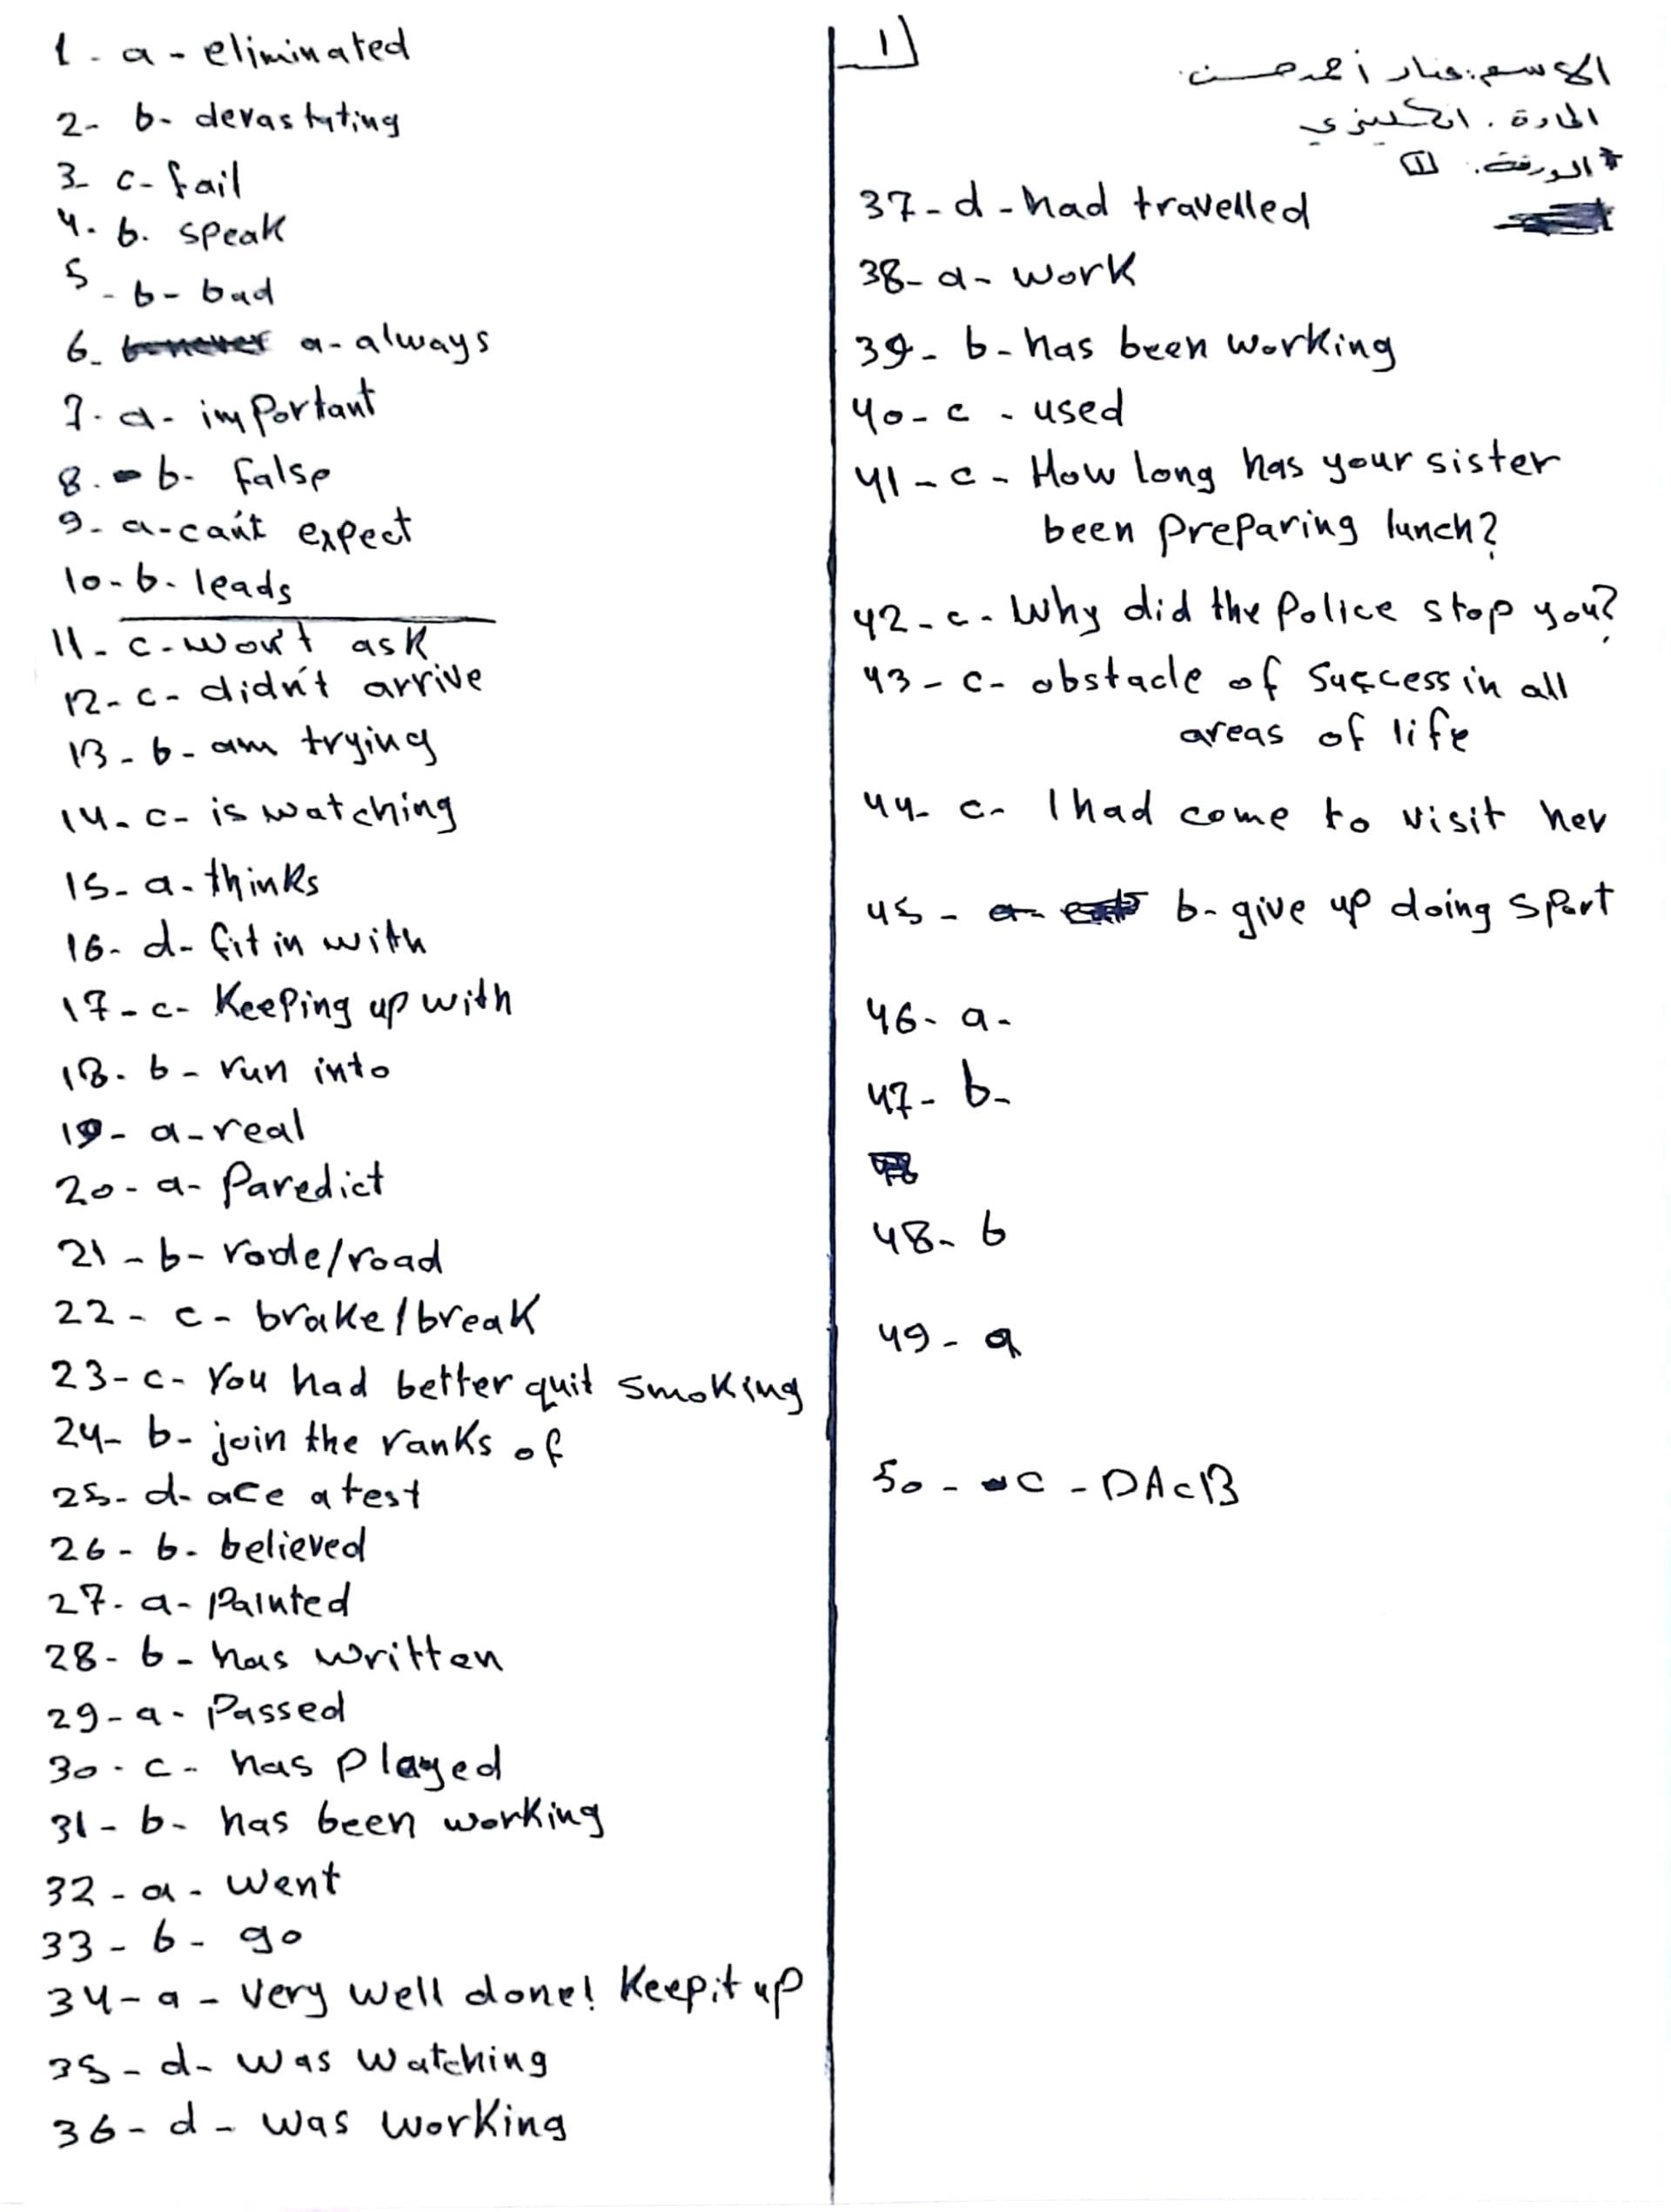 1 - a - eliminated
2- b- devastating
3- c- fail
4. b. speak
5 - b- bad
6- a- always
7- a- important
8. b- false
9- a- can't expect
10- b. leads
11- c- won't ask
12- c- didn't arrive
13- b- am trying
14- c- is watching
15- a- thinks
16- d- fit in with
17- c- Keeping up with
18- b- run into
19- a- real
20- a- Paredict
21- b- rode/road
22- c- brake/break
23- c- You had better quit smoking
24- b- join the ranks of
25- d- ace a test
26- b- believed
27- a- Painted
28- b- has written
29- a- Passed
30- c- has Played
31- b- has been working
32- a- went
33- b- go
34- a- very well done! Keep it up
35- d- was watching
36- d- was working
1
الاسم: منار أحمد حسن
المادة. انكليزي
* الورقة. 1
37- d- had travelled
38- a- work
39- b- has been working
40- c- used
41- c- How long has your sister
been Preparing lunch?
42- c- Why did the Police stop you?
43- c- obstacle of Success in all
areas of life
44- c- I had come to visit her
45- b- give up doing sport
46- a-
47- b-
48- b
49- a
50- c- DAcB